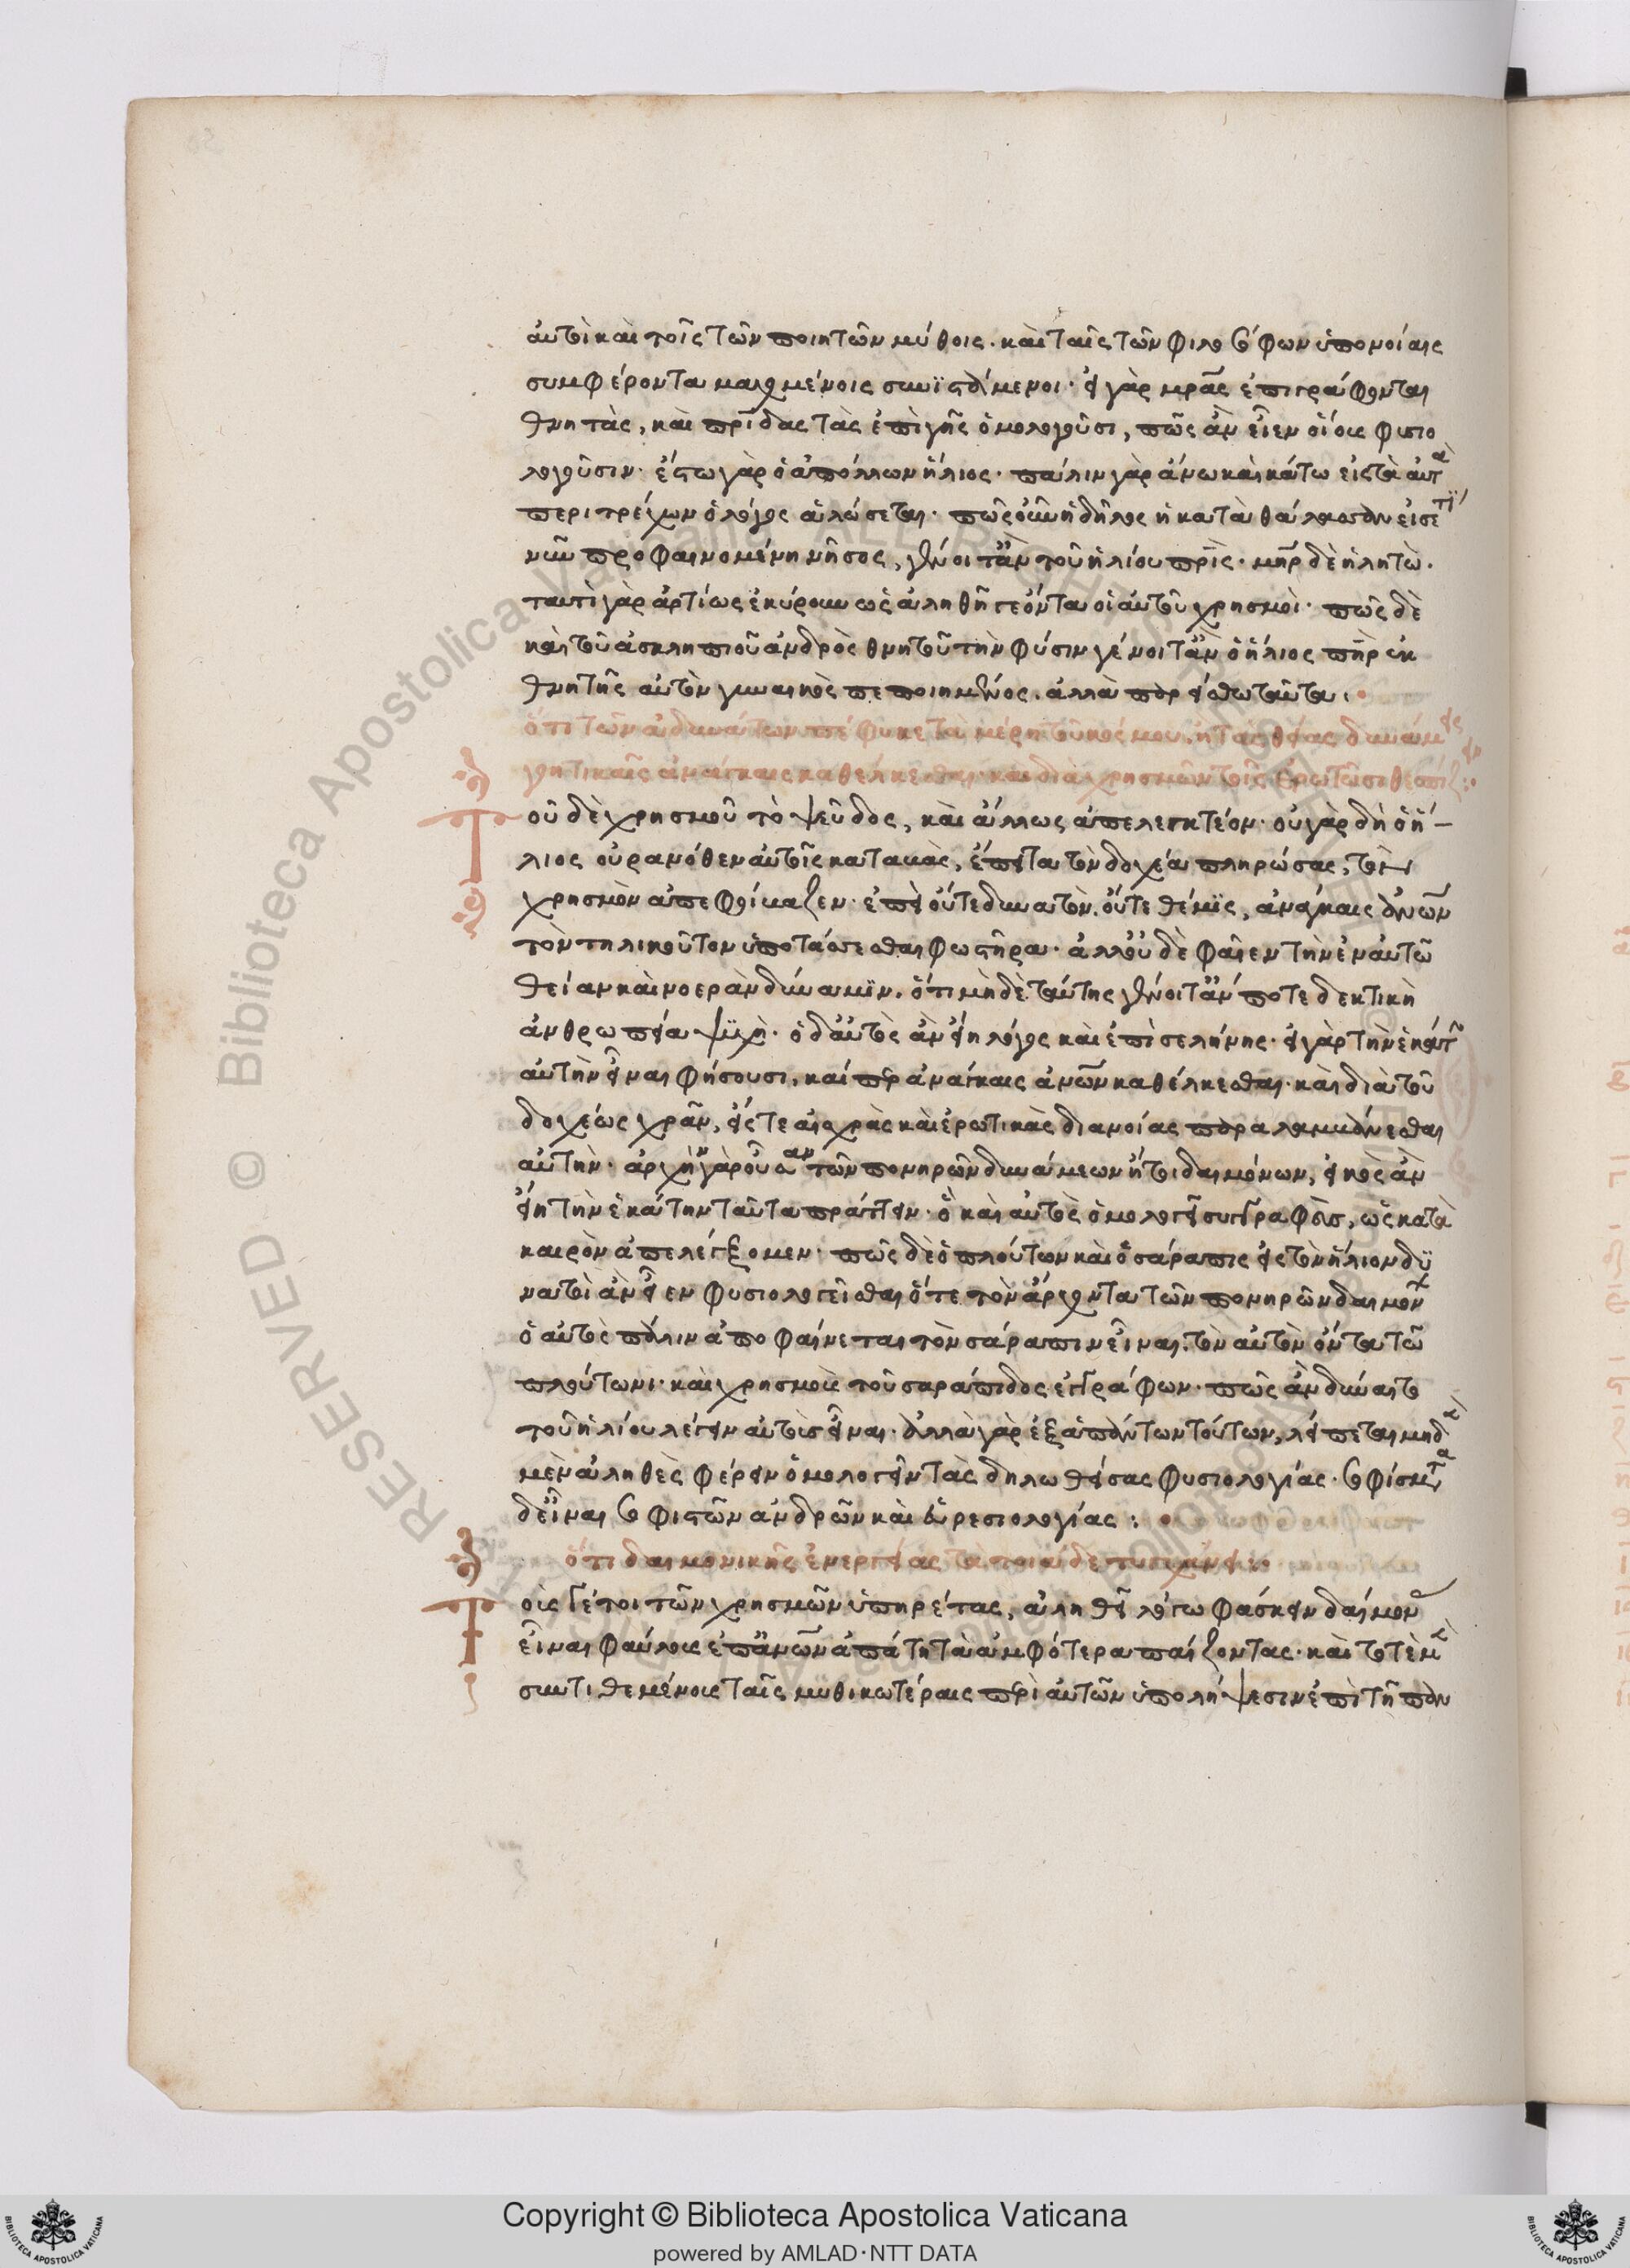 αὐτοὶ καὶ τοῖς τῶν ποιητῶν μύθοις. καὶ ταῖς τῶν φιλοσόφων ὑπονοίαις
συμφέρονται μαχομένοις συνϊστάμενοι. εἰ γὰρ μρ̅ας ἐπιγράφονται
θνητὰς, καὶ πρίδας τὰς ἐπὶ γῆς ὁμολογοῦσι, πῶς ἂν εἶεν οἵους φυσιο
λογοῦσιν. ἔστω γὰρ ὁ ἀπόλλων ἥλιος. πάλιν γὰρ ἄνω καὶ κάτω εἰς τὰ αὐτὰ
περιτρέχων ὁ λόγος ἁλώσεται. πῶς οὖν ἡ δῆλος ἡ κατὰ θάλασσαν εἰσέτι
νῦν προφαινομένη νῆσος, γένοιτ' ἂν τοῦ ἡλίου πρὶς. μηρ δὲ ἡ λητὼ.
ταυτὶ γὰρ ἀρτίως ἐκύρουν ὡς ἀληθῆ γε ὄντα οἱ αὐτοῦ χρησμοὶ. πῶς δὲ
καὶ τοῦ ἀσκληπιοῦ ἀνδρὸς θνητοῦ τὴν φύσιν γένοιτ' ἂν ὁ ἥλιος πὴρ ἐκ
θνητῆς αὐτὸν γυναικὸς πεποιημένος. ἀλλὰ παρείσθω ταῦτα.
ὅτι τῶν ἀδυνάτων πέφυκε τὰ μέρη τοῦ κόσμου. ἢ τὰς θείας δυνάμεις
γοητικαῖς ἀνάγκαις καθέλκεσθαι. καὶ διὰ χρησμῶν τοῖς ἐρωτῶσι θεσπίζειν
οὗ δὲ χρησμοῦ τὸ ψεῦδος, καὶ ἄλλως ἀπελεγκτέον. οὐ γὰρ δὴ ὁ ἥ-
λιος οὐρανόθεν αὐτοῖς καταβὰς, ἔπειτα τὸν δοχέα πληρώσας, τὸν
χρησμὸν ἀπεφοίβαζεν. ἐπεὶ οὔτε δυνατὸν. οὔτε θέμϊς, ἀνάγκαις ἀνῶν
τὸν τηλικοῦτον ὑποτάσσεσθαι φωστῆρα. ἀλλ' οὐδὲ φαῖεν τὴν ἐν αὐτῶ
θείαν καὶ νοερὰν δύναμϊν. ὅτι μὴ δὲ ταύτης γένοιτ' ἄν ποτε δεκτικὴ
ἀνθρωπεία ψϋχὴ. ὁ δ' αὐτὸς ἂν εἴη λόγος καὶ ἐπὶ σελήνης. εἰ γὰρ τὴν ἑκάτ
αὐτὴν εἶναι φήσουσι, καί πῶς ἀνάγκαις ἀνῶν καθέλκεσθαι. καὶ διὰ τοῦ
δοχέως χρᾶν, εἴς τε αἰσχρὰς καὶ ἐρωτικὰς διανοίας παραλαμβάνεσθαι
αὐτὴν. ἀρχὴν γὰρ οὖσαν τῶν πονηρῶν δυνάμεων ἤτοι δαιμόνων, εἰκὸς ἂν
εἴη τὴν ἑκάτην ταῦτα πράττειν. ὃ καὶ αὐτὸς ὁμολογεῖ συγγραφεὺς, ὡς κατὰ
καιρὸν ἀπελέγξομεν. πῶς δὲ ὁ πλούτων καὶ ὁ σάραπις εἰς τὸν ἥλιον δϋ
ναιτοὶ ἂν εἶεν φυσιολογεῖσθαι ὅτε τὸν ἄρχοντα τῶν πονηρῶν δαιμόν
ὁ αὐτὸς πάλιν ἀποφαίνεται τὸν σάραπιν εἶναι. τὸν αὐτὸν ὄντα τῶ
πλούτωνι. καὶ χρησμοὺς τοῦ σαράπιδος ἐγγράφων. πῶς ἂν δύναιτο
τοῦ ἡλίου λέγειν αὐτοὺς εἶναι. ἀλλὰ γὰρ ἐξ ἁπάντων τούτων, λείπεται μηδὲ
μὲν ἀληθὲς φέρειν ὁμολογεῖν τὰς δηλωθείσας φυσιολογίας. σοφίσματα
δ' εἶναι σοφιστῶν ἀνδρῶν καὶ εὑρεσιολογίας:
ὅτι δαιμονικῆς ἐνεργείας τὰ τοιάδε τυγχάνει:
οἷς γέ τοι τῶν χρησμῶν ὑπηρέτας, ἀληθεῖ λόγω φάσκειν δαίμον
εἶναι φαύλους ἐπ' ἀνῶν ἀπάτη τὰ ἀμφότερα παίζοντας. καὶ τοτὲ μὲ
συντιθεμένους ταῖς μυθικωτέραις περὶ αὐτῶν ὑπολήψεσιν ἐπὶ τῆ παν
Copyright © Biblioteca Apostolica Vaticana
powered by AMLAD·NTT DATA